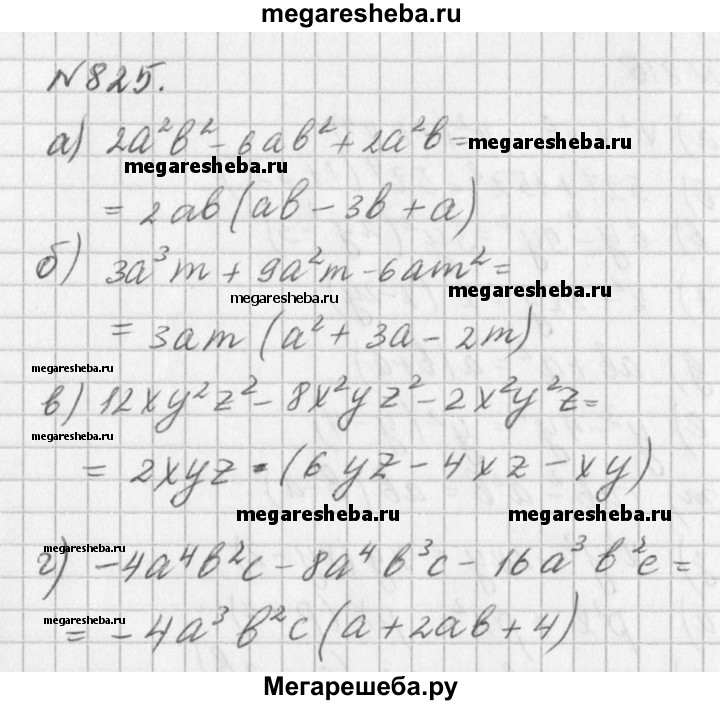 megaresheba.ru
№825.
а) 2a²b² - 6ab² + 2a²b = megaresheba.ru
megaresheba.ru
= 2ab(ab - 3b + a)
б) 3a³m + 9a²m - 6am² =
megaresheba.ru megaresheba.ru
= 3am(a² + 3a - 2m)
megaresheba.ru
в) 12xy²z² - 8x²yz² - 2x²y²z =
megaresheba.ru
= 2xyz · (6yz - 4xz - xy)
megaresheba.ru megaresheba.ru
megaresheba.ru
г) -4a⁴b²c - 8a⁴b³c - 16a³b²c =
megaresheba.ru
= -4a³b²c(a + 2ab + 4)
Мегарешеба.ру